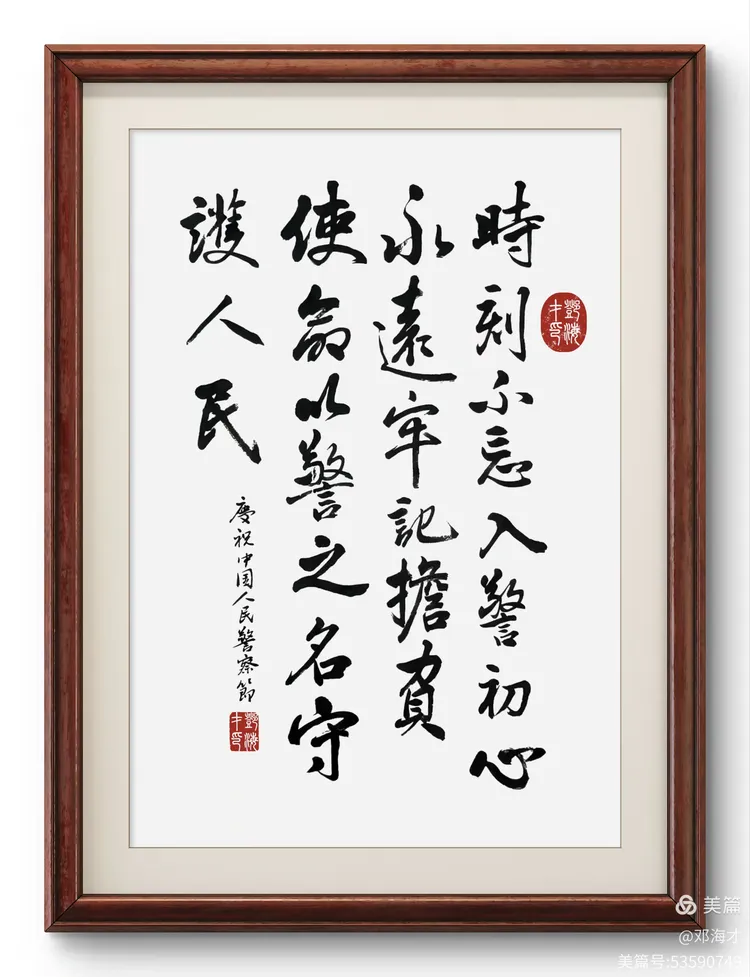 時刻不忘入警初心
永遠牢記擔負
使命以警之名守
護人民
慶祝中国人民警察節
鄧海才印
鄧海才印
美篇
@邓海才
美篇号:53590743